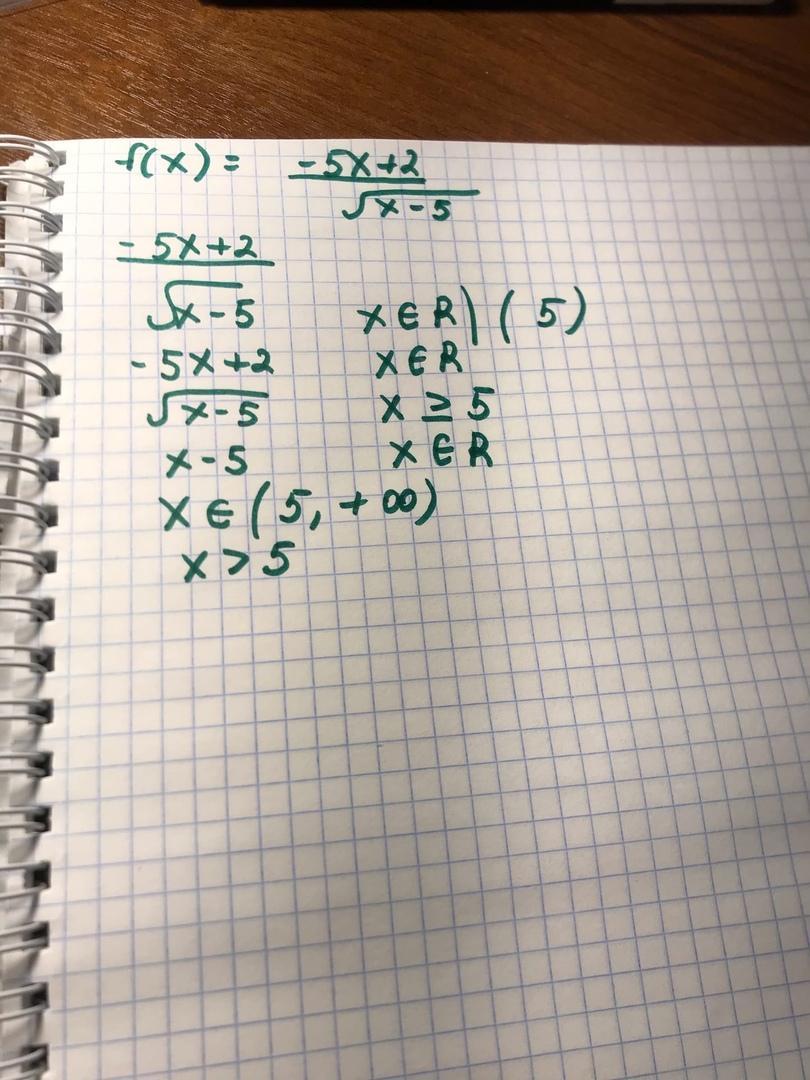 f(x) = -5x+2
√x-5
-5x+2
√x-5 x ∈ R \ ( 5 )
-5x+2 x ∈ R
√x-5 x ≥ 5
x-5 x ∈ R
x ∈ (5, +∞)
x > 5